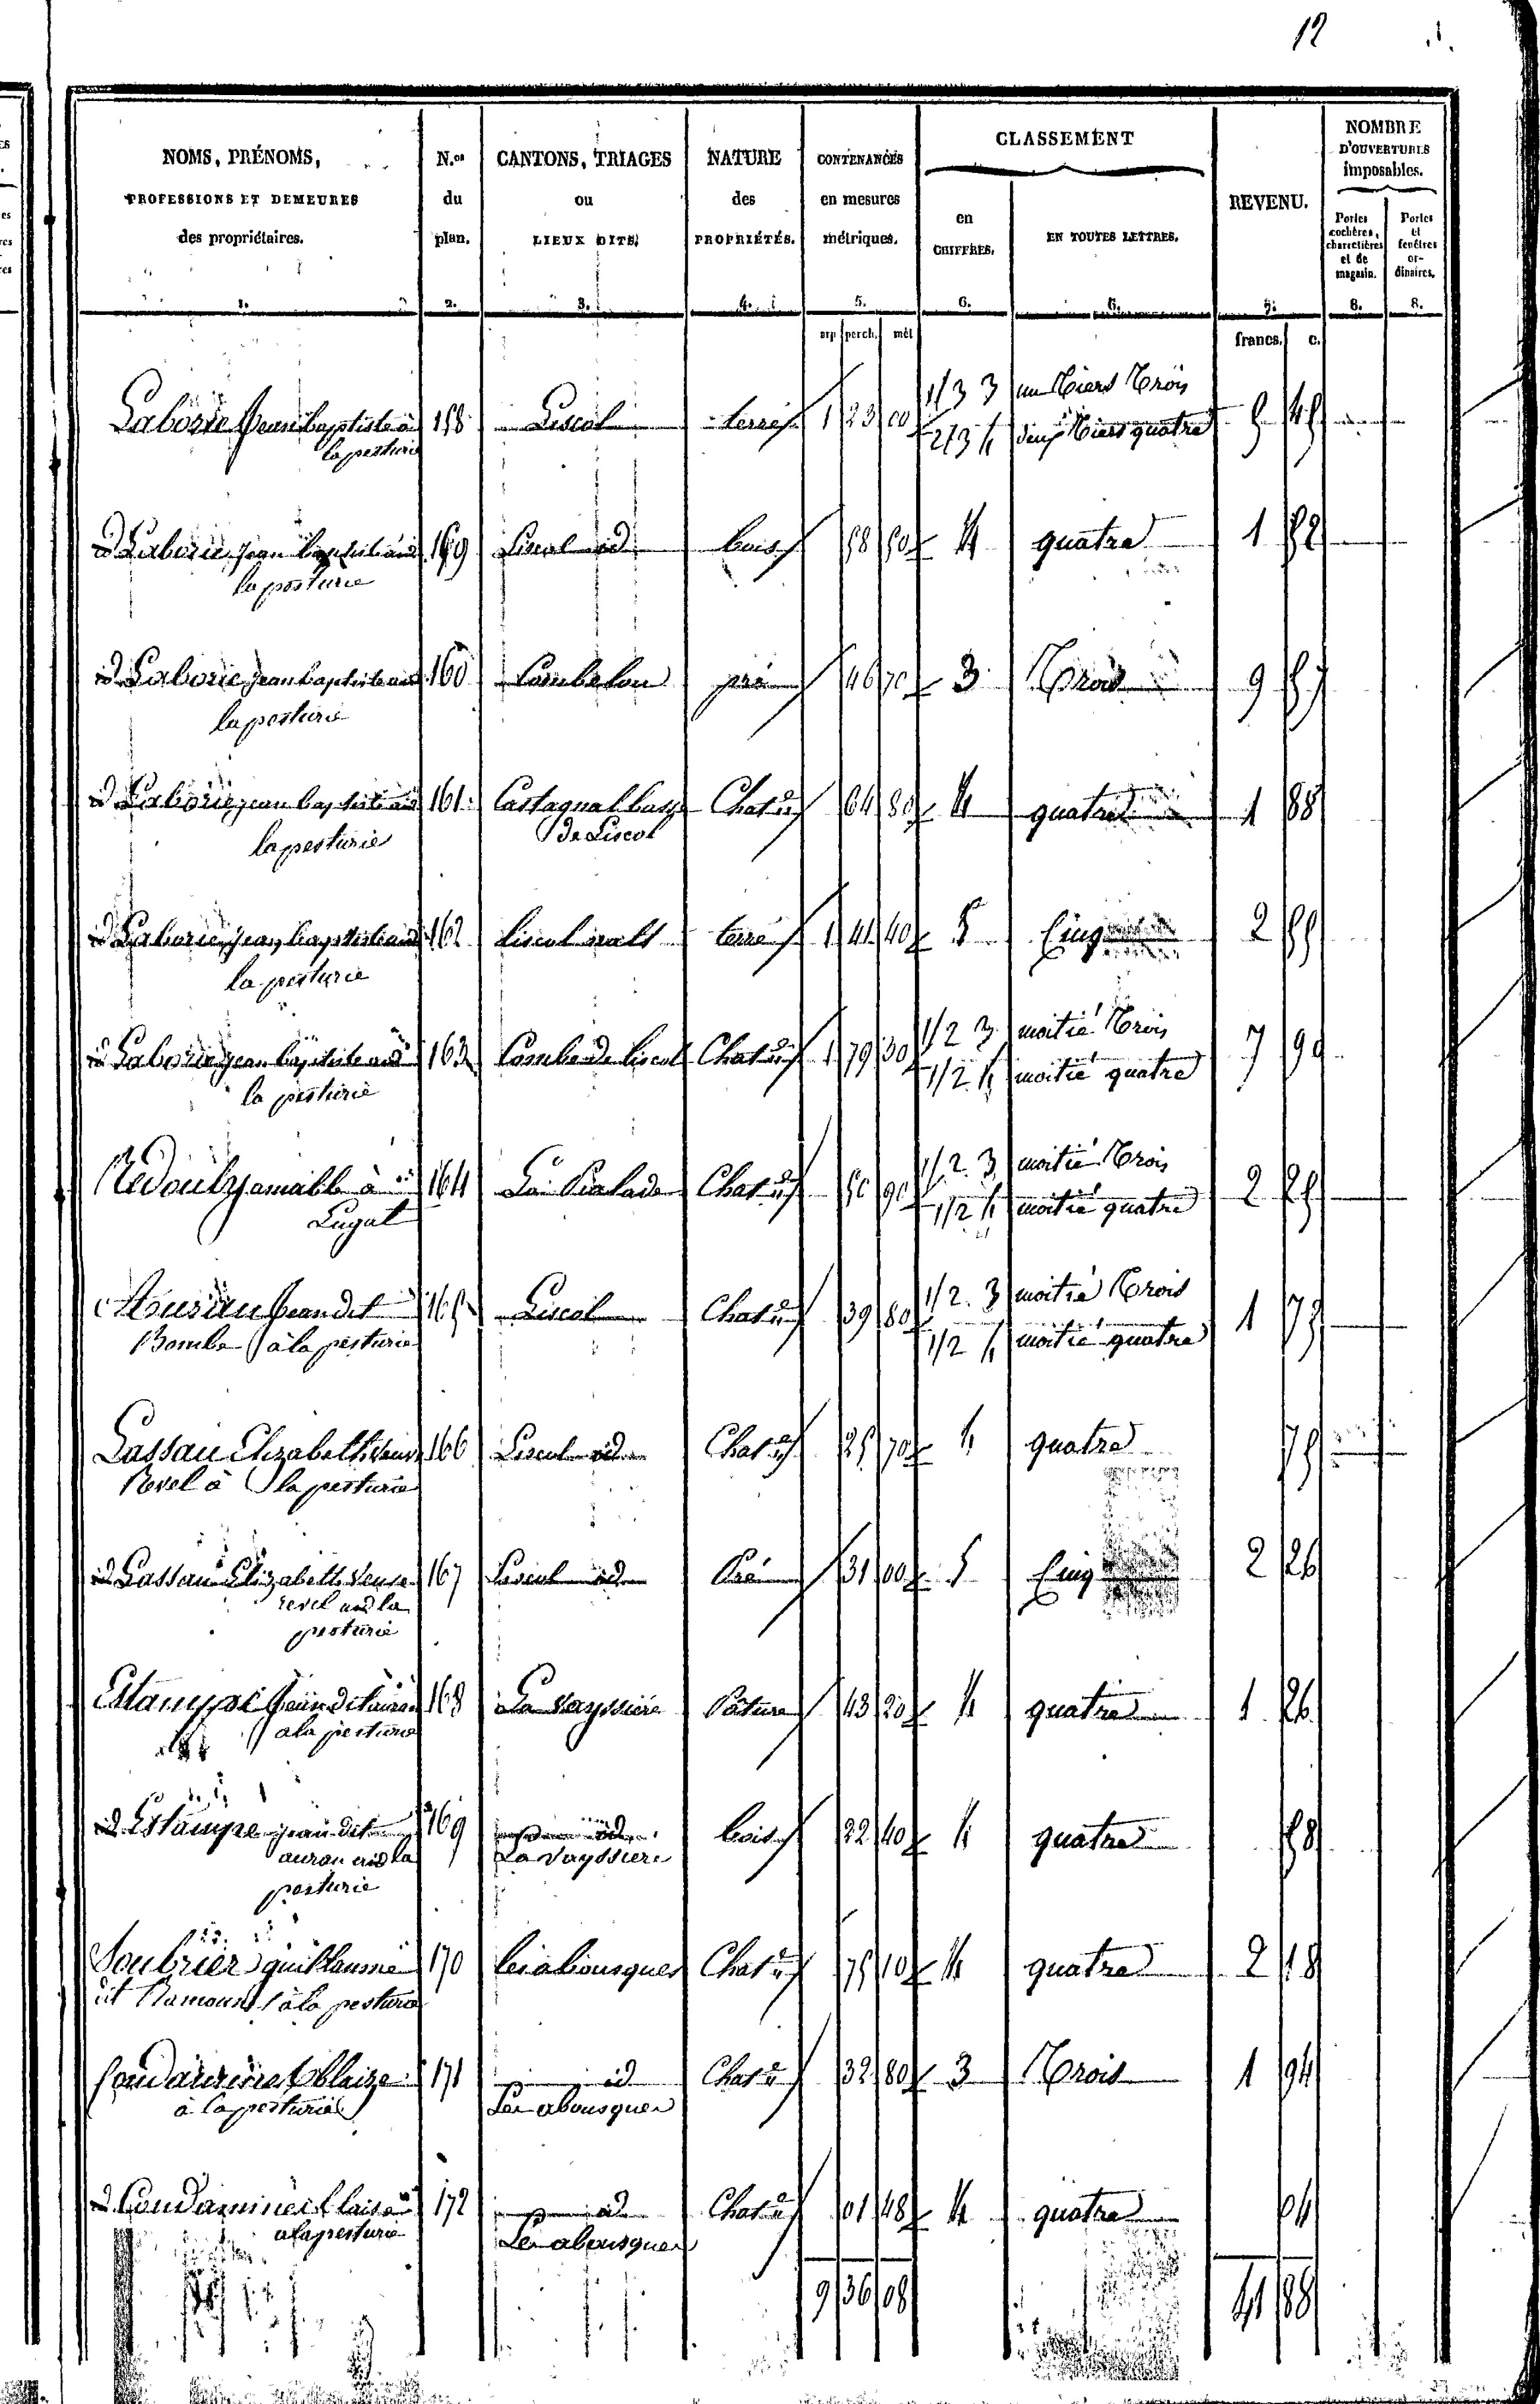 12
NOMS, PRÉNOMS, PROFESSIONS ET DEMEURES des propriétaires. 1.
N.os du plan. 2.
CANTONS, TRIAGES ou LIEUX DITS. 3.
NATURE des PROPRIÉTÉS. 4.
CONTENANCES en mesures métriques. 5.
CLASSEMENT
en CHIFFRES. 6.
EN TOUTES LETTRES. 6.
REVENU. 7.
NOMBRE D'OUVERTURES imposables.
Portes cochères, charretières et de magasin. 8.
Portes et fenêtres ordinaires. 8.
arp. perch. mèt. francs. c.
Laborie Jean baptiste à 158 Liscol terre 1 23 00 1/3 3 un tiers Trois 5 45
la pesturie 2/3 4 deux tiers quatre
id Laborie Jean baptiste 159 Liscol id bois 58 50 4 quatre 1 52
la pesturie
id Laborie Jean baptiste 160 Combelou pré 46 70 3 Trois 9 57
la pesturie
id Laborie Jean baptiste 161 Castagnal bass Chat 64 80 4 quatre 1 88
la pesturie de Liscol
id Laborie Jean baptiste 162 Liscol terre 1 41 40 5 Cinq 2 55
la pesturie
id Laborie Jean baptiste 163 Combe de liscol Chat 1 79 30 1/2 3 moitié Trois 7 99
la pesturie 1/2 4 moitié quatre
Redouly amable à 164 La Chat 50 90 1/2 3 moitié Trois 2 25
Lugat 1/2 4 moitié quatre
Jean dit 165 Liscol Chat 39 80 1/2 3 moitié Trois 1 75
Bombe à la pesturie 1/2 4 moitié quatre
Lassau Elizabeth veuve 166 Liscol id Chat 25 70 4 quatre 75
Revel à la pesturie
id Lassau Elizabeth veuve 167 Liscol id Pré 31 00 5 Cinq 2 26
revel la
pesturie
Estampe Jean dit auran 168 La Vayssiere Pature 43 20 4 quatre 1 26
a la pesturie
id Estampe jean dit 169 id bois 22 40 4 quatre 58
auran la La Vayssiere
pesturie
Soubrier guillaume 170 les abousques Chat 75 10 4 quatre 2 18
dit Ramound à la pesturie
Condamines blaize 171 id Chat 32 80 3 Trois 1 94
à la pesturie Les abousques
id Condamines blaise 172 id Chat 01 48 4 quatre 04
a la pesturie Les abousques
9 36 08 41 88